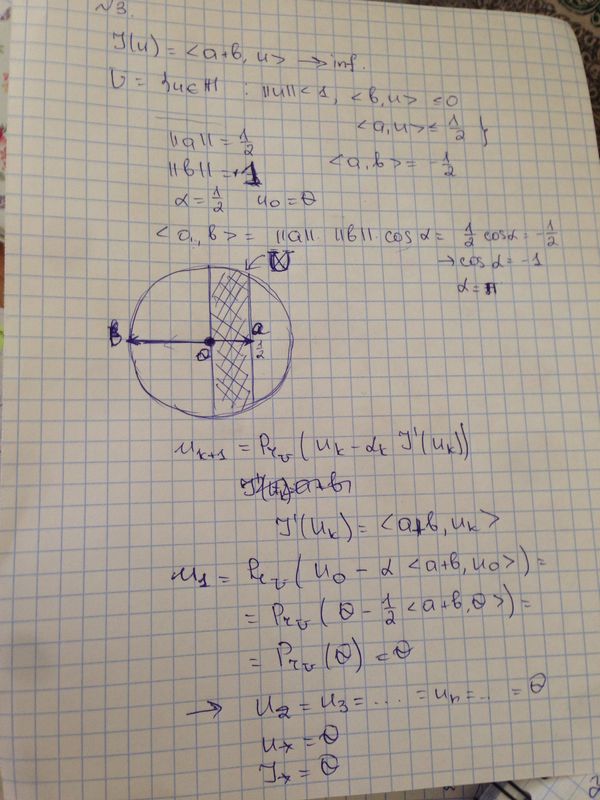 №3.
J(u) = <a+b, u> → inf.
U = {u∈H : ||u||<1, <b,u> ≤0
<a,u> ≤ 1/2 }
||a|| = 1/2
||b|| = 1
<a,b> = -1/2
α = 1/2 u₀ = θ
<a,b> = ||a||·||b||·cos α = 1/2 cos α = -1/2
→ cos α = -1
α = π
U
b θ a
1/2
u_{k+1} = Pr_U (u_k - α_k J'(u_k))
J'(u_k) = <a+b, u_k>
u₁ = Pr_U (u₀ - α <a+b, u₀>) =
= Pr_U (θ - 1/2 <a+b, θ>) =
= Pr_U (θ) = θ
→ u₂ = u₃ = .... = u_n = .. = θ
u_* = θ
J_* = θ